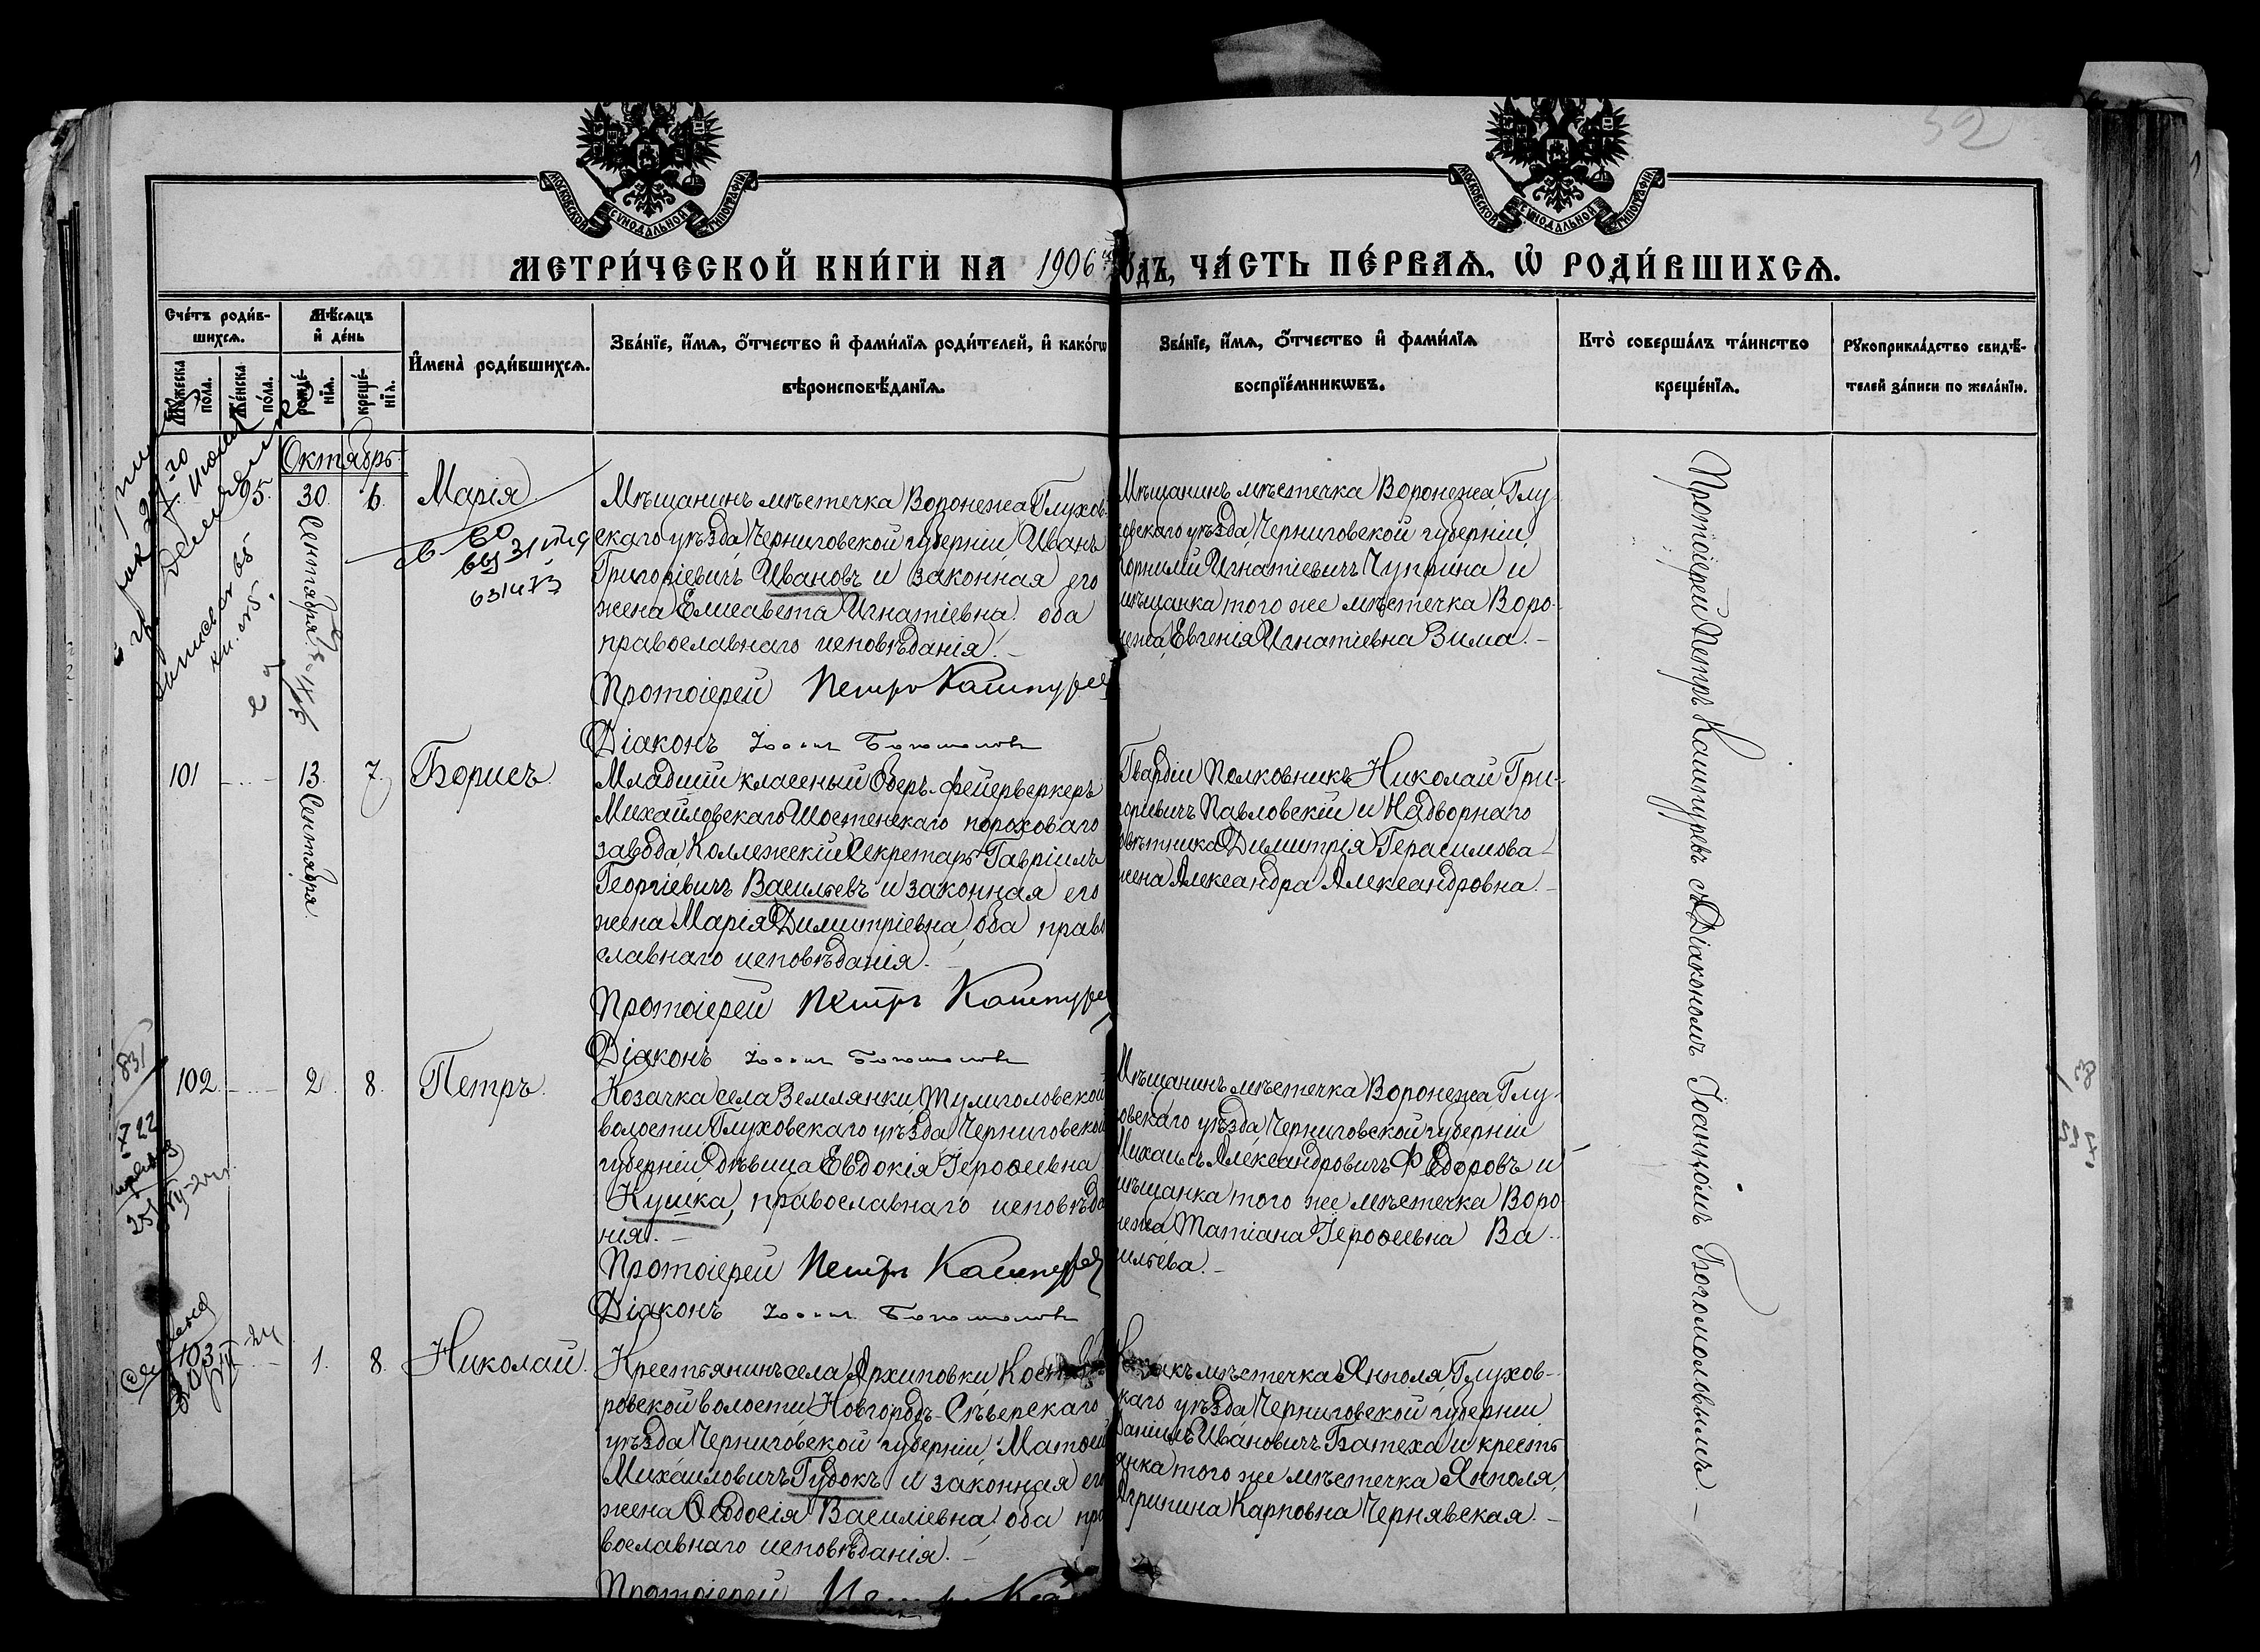 МОСКОВСКОЙ СУНОДАЛЬНОЙ ТИПОГРАФІИ
МОСКОВСКОЙ СУНОДАЛЬНОЙ ТИПОГРАФІИ
52
МЕТРИ́ЧЕСКОЙ КНИ́ГИ НА 1906 годъ, ЧА́СТЬ ПЕ́РВАѦ, Ѡ҆ РОДИ́ВШИХСѦ.
Сче́тъ роди́в-
шихсѧ.
Мꙋжеска
по́ла.
Же́нска
по́ла.
Мѣ́сѧцъ
и҆ де́нь
рожде́-
нїѧ.
креще́-
нїѧ.
И҆мена̀ роди́вшихсѧ.
Зва́нїе, и҆́мѧ, ѻ҆́тчество и҆ фами́лїѧ роди́телей, и҆ како́гѡ
вѣроисповѣ́данїѧ.
Зва́нїе, и҆́мѧ, ѻ҆́тчество и҆ фами́лїѧ
воспрїе́мникѡвъ.
Кто̀ соверша́лъ та́инство
креще́нїѧ.
Рꙋкоприкла́дство свидѣ́-
телей за́писи по жела́нїю.
Октябрь.
95. 30. Сентября. 6. Марія.
Мѣщанинъ мѣстечка Воронежа Глухов-
скаго уѣзда Черниговской губерніи Иванъ
Григоріевичъ Ивановъ и законная его
жена Елисавета Игнатіевна, оба
православнаго исповѣданія.
Протоіерей Петръ Кашпуревъ
Діаконъ Іоаннъ Богомоловъ
Мѣщанинъ мѣстечка Воронежа Глу-
ховскаго уѣзда Черниговской губерніи
Корнилій Игнатіевичъ Чуприна и
мѣщанка того же мѣстечка Воро-
нежа Евгенія Игнатіевна Зима.
101 13. Сентября. 7. Борисъ.
Младшій классный Оберъ-фейерверкеръ
Михайловскаго Шостенскаго пороховаго
завода, Коллежскій Секретарь Гавріилъ
Георгіевичъ Васильевъ и законная его
жена Марія Димитріевна, оба право
славнаго исповѣданія.
Протоіерей Петръ Кашпуревъ
Діаконъ Іоаннъ Богомоловъ
Гвардіи Полковникъ Николай Гри-
горіевичъ Павловскій и Надворнаго
Совѣтника Димитрія Герасимова
жена Александра Александровна.
102. 2. 8. Петръ.
Козачка села Землянки Тулиголовской
волости, Глуховскаго уѣзда Черниговской
губерніи дѣвица Евдокія Іероѳеевна
Кушка, православнаго исповѣда
нія.
Протоіерей Петръ Кашпуревъ
Діаконъ Іоаннъ Богомоловъ
Мѣщанинъ мѣстечка Воронежа Глу-
ховскаго уѣзда Черниговской губерніи
Михаилъ Александровичъ Ѳедоровъ и
мѣщанка того же мѣстечка Воро-
нежа Татіана Іероѳеевна Ва-
сильева.
103. 1. 8. Николай.
Крестьянинъ села Архиповки
ровской волости Новгородъ-Сѣверскаго
уѣзда Черниговской губерніи Матѳей
Михаиловичъ Гудокъ и законная его
жена Ѳеодосія Василіевна, оба пра
вославнаго исповѣданія.
Протоіерей
Козакъ мѣстечка Янполя Глухов-
скаго уѣзда Черниговской губерніи
Даніилъ Ивановичъ Батеха и кресть
янка того же мѣстечка Янполя,
Агрипина Карповна Чернявская.
Протоіерей Петръ Кашпуревъ съ Діакономъ Іоанномъ Богомоловымъ.